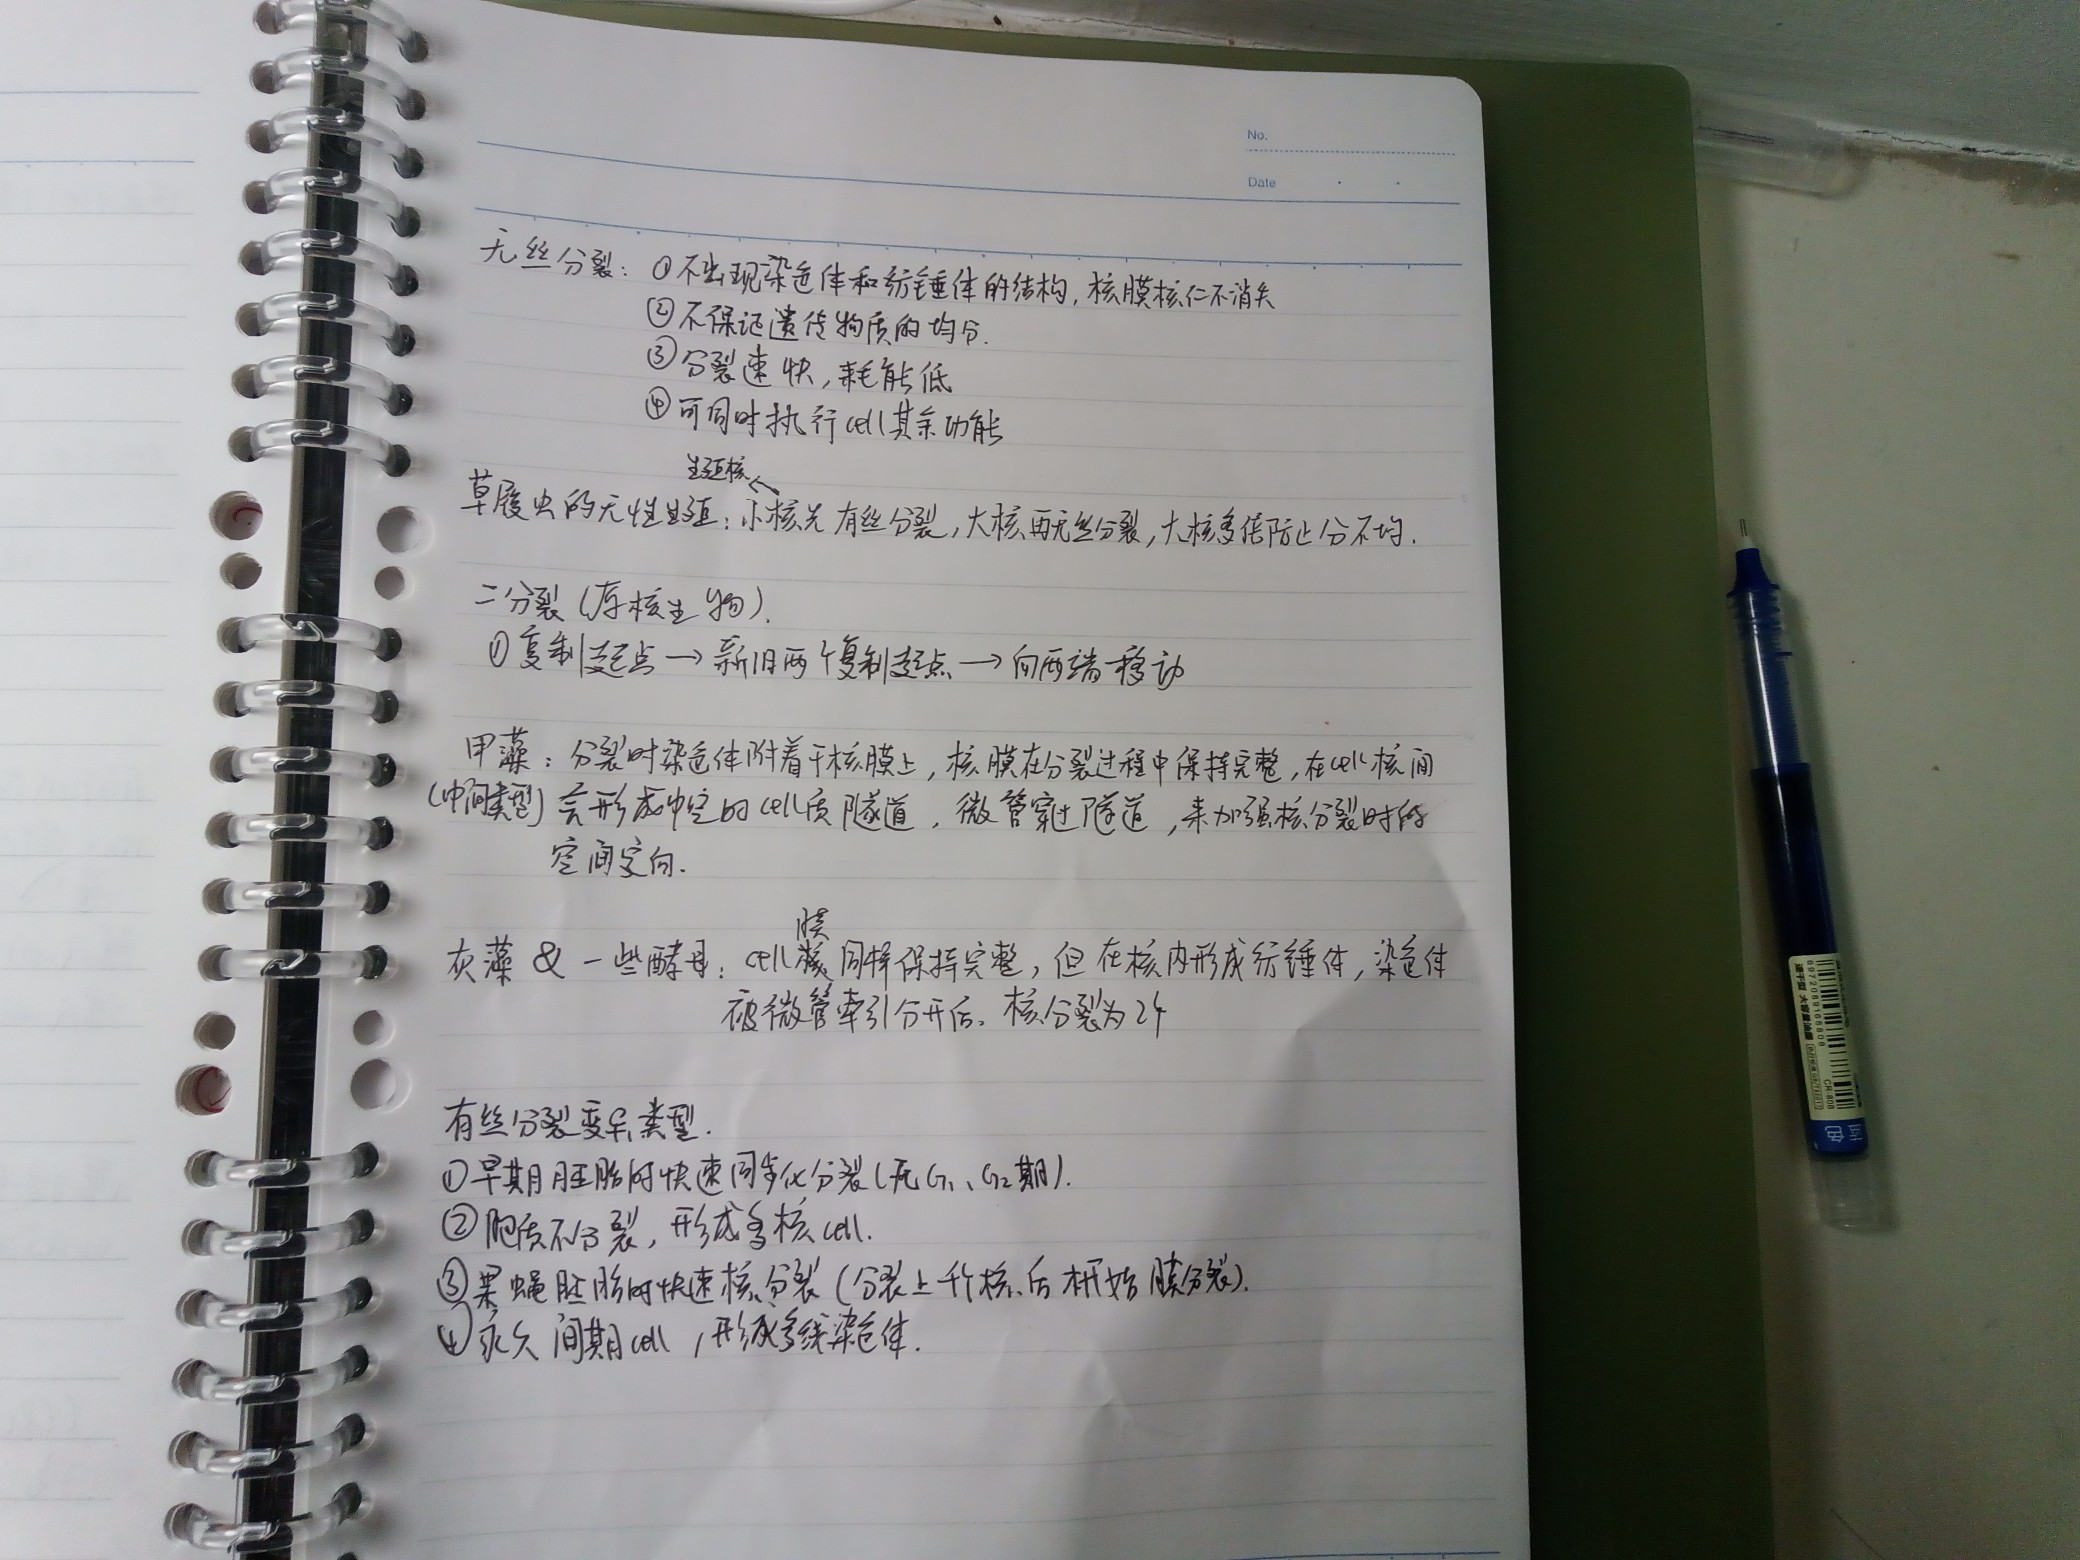 No.
Date
无丝分裂：①不出现染色体和纺锤体的结构，核膜核仁不消失
②不保证遗传物质的均分．
③分裂速快，耗能低
④可同时执行cell其余功能
生殖核
草履虫的无性生殖：小核先有丝分裂，大核再无丝分裂，大核多倍防止分不均．
二分裂（原核生物）．
①复制起点→新旧两个复制起点→向两端移动
甲藻：分裂时染色体附着于核膜上，核膜在分裂过程中保持完整，在cell核间
（中间类型）会形成中空的cell质隧道，微管穿过隧道，来加强核分裂时的
空间定向．
膜
灰藻 & 一些酵母：cell核同样保持完整，但在核内形成纺锤体，染色体
被微管牵引分开后、核分裂为2个
有丝分裂变异类型．
①早期胚胎的快速同步化分裂（无G1、G2期）．
②胞质不分裂，形成多核cell．
③果蝇胚胎的快速核分裂（分裂上千个核后才开始膜分裂）．
④永久间期cell，形成多线染色体．
蓝色
CR-808
6972089166808